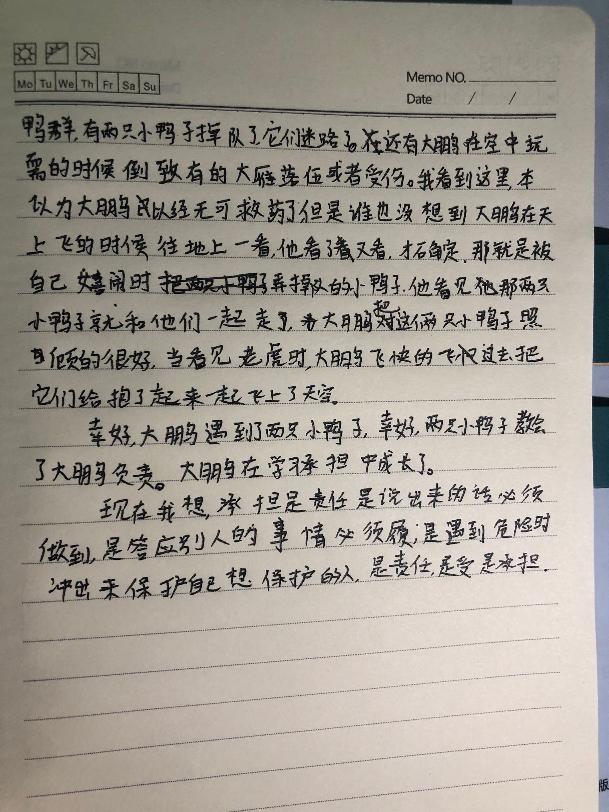 Mo Tu We Th Fr Sa Su
Memo NO.
Date / /
鸭群,有两只小鸭子掉队了,它们迷路了。在还有大鹏在空中玩
耍的时候倒致有的大雁落伍或者受伤。我看到这里本
以为大鹏以经无可救药了但是谁也没想到大鹏在天
上飞的时候往地上一看,他看了看又看,才确定,那就是被
自己嬉闹时弄掉队的小鸭子.他看见那两只
小鸭子就和他们一起走了,大鹏把这俩只小鸭子照
顾的很好.当看见老虎时,大鹏飞快的飞过去把
它们给抱了起来一起飞上了天空。
幸好,大鹏遇到了两只小鸭子,幸好,两只小鸭子教会
了大鹏负责。大鹏在学习承担中成长了。
现在我想,承担是责任是说出来的话必须
做到,是答应别人的事情必须履,是遇到危险时
冲出来保护自己想保护的人.是责任,是爱是承担.
版